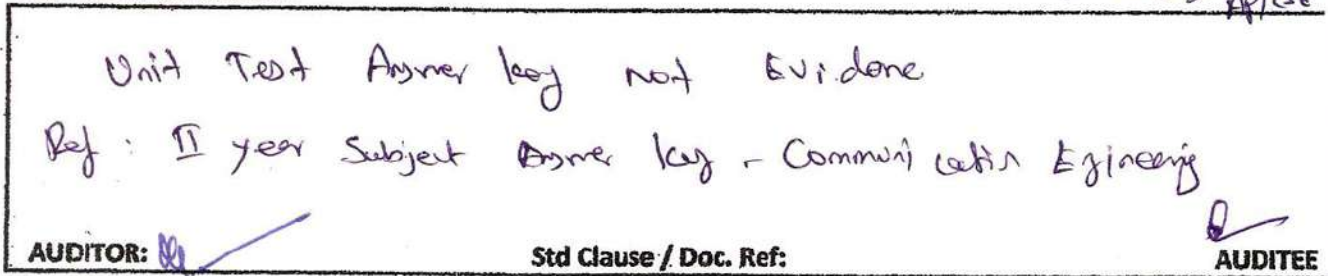 Unit Test Answer key not Evidone
Ref : II year Subject Answer key - Communication Engineering
AUDITOR: Std Clause / Doc. Ref: AUDITEE